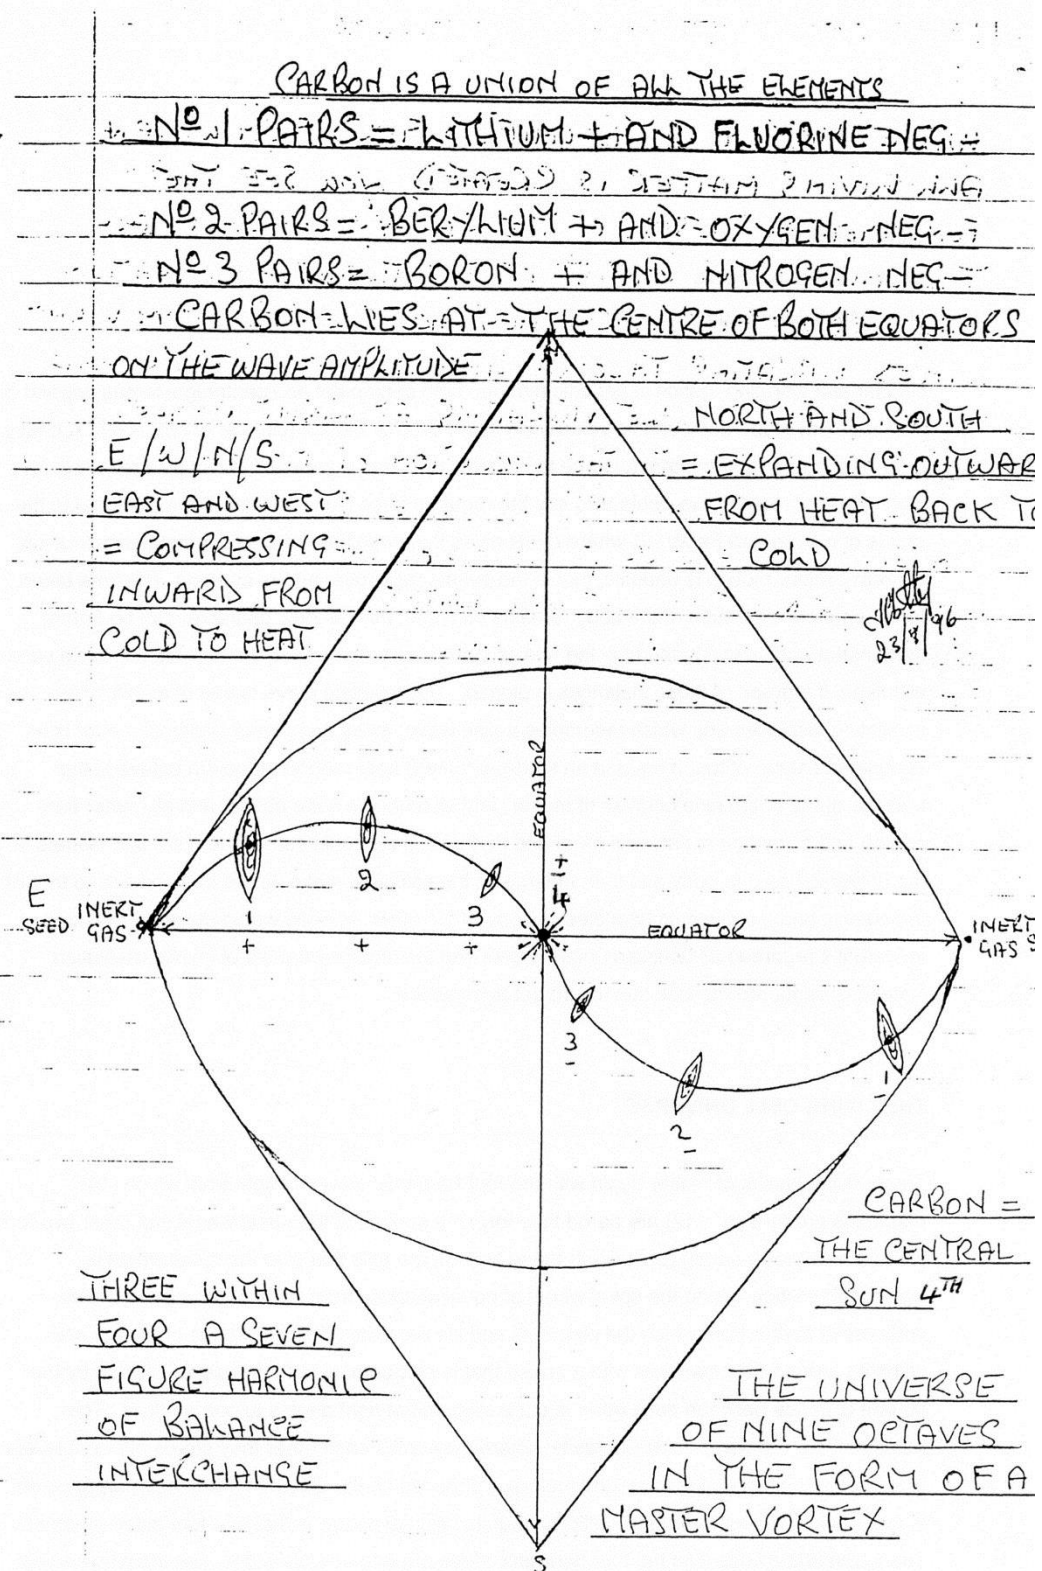 CARBON IS A UNION OF ALL THE ELEMENTS
Nº 1 PAIRS = LITHIUM + AND FLUORINE NEG -
Nº 2 PAIRS = BERYLIUM + AND OXYGEN NEG -
Nº 3 PAIRS = BORON + AND NITROGEN NEG -
CARBON LIES AT THE CENTRE OF BOTH EQUATORS
ON THE WAVE AMPLITUDE
NORTH AND SOUTH
= EXPANDING OUTWAR
FROM HEAT BACK TO
COLD
E/W/N/S
EAST AND WEST
= COMPRESSING
INWARD FROM
COLD TO HEAT
N
EQUATOR
E
SEED INERT GAS
1 +
2 +
3 +
± 4
EQUATOR
INERT
GAS S
3 -
2 -
1 -
CARBON =
THE CENTRAL
SUN 4TH
THREE WITHIN
FOUR A SEVEN
FIGURE HARMONIC
OF BALANCE
INTERCHANGE
THE UNIVERSE
OF NINE OCTAVES
IN THE FORM OF A
MASTER VORTEX
S